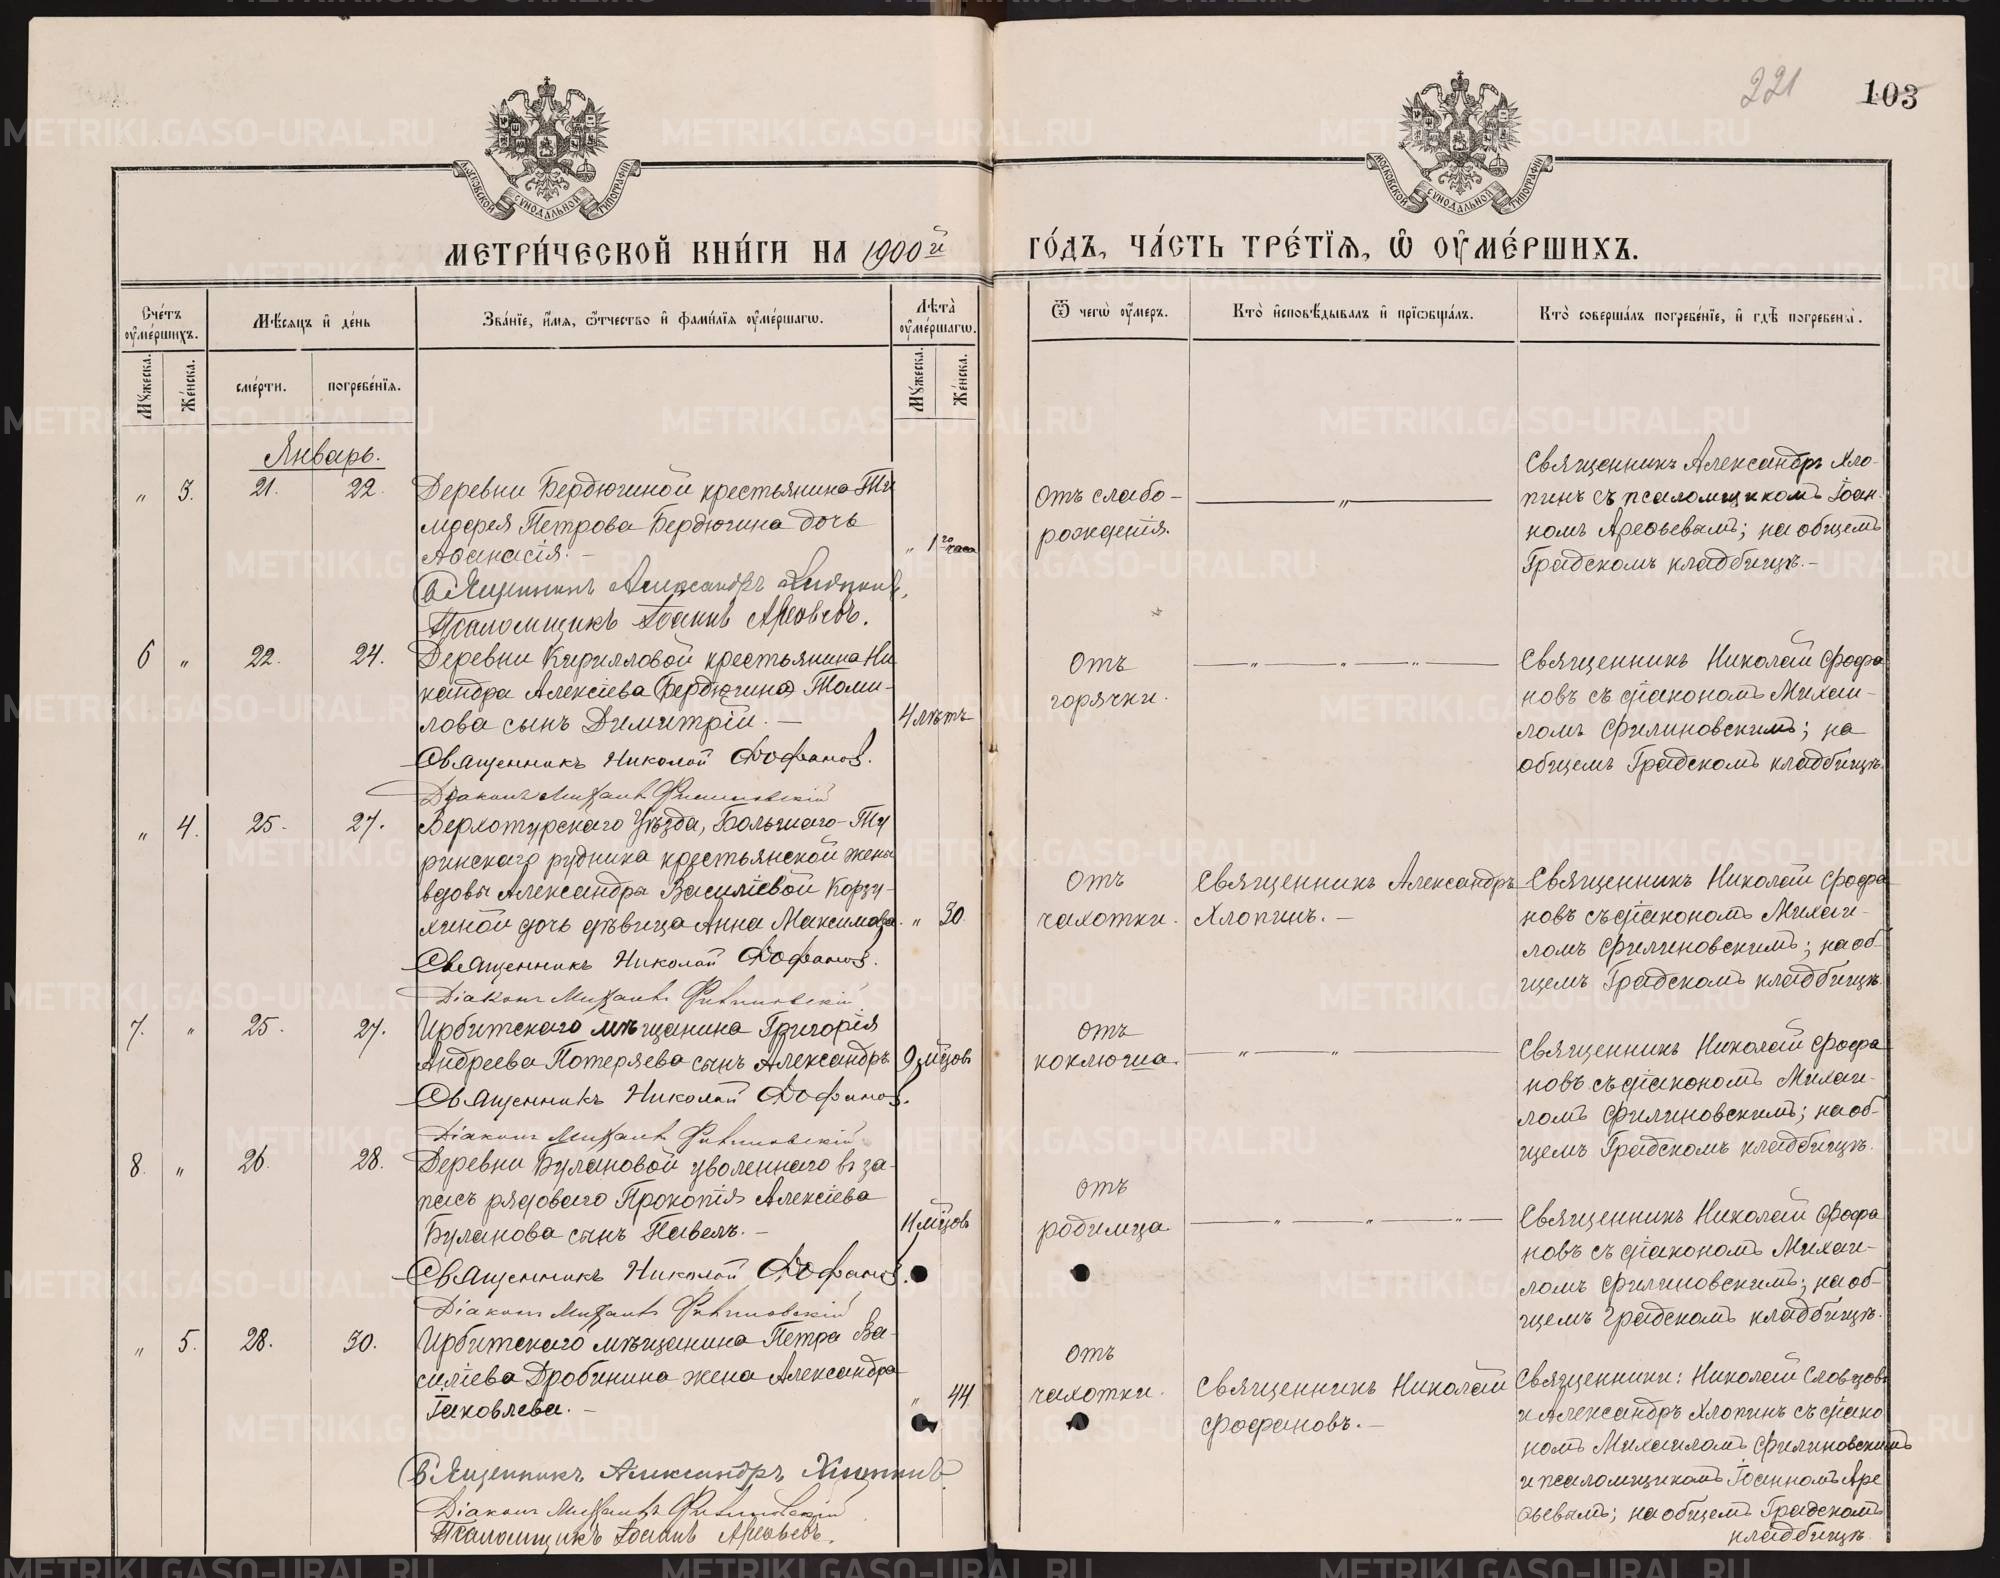 221
103
МОСКОВСКОЙ СѴНОДАЛЬНОЙ ТИПОГРАФІИ
МОСКОВСКОЙ СѴНОДАЛЬНОЙ ТИПОГРАФІИ
МЕТРИ́ЧЕСКОЙ КНИ́ГИ НА 1900й ГО́ДЪ, ЧА́СТЬ ТРЕ́ТЇѦ, Ѡ ОУМЕ́РШИХЪ.
Сче́тъ оуме́ршихъ.
Мѣ́сяцъ и҆ де́нь
Зва́нїе, и҆́мя, ѻ҆́тчество и҆ фами́лїя оуме́ршагѡ.
Лѣ́та оуме́ршагѡ.
Ѿ чегѡ̀ оу҆́меръ.
Кто̀ и҆сповѣ́дывалъ и҆ прїѡбща́лъ.
Кто̀ соверша́лъ погребе́нїе, и҆ гдѣ̀ погребены̀.
Мꙋ́жеска.
Же́нска.
сме́рти.
погребе́нїя.
Мꙋ́жеска.
Же́нска.
Январь.
" 3. 21. 22.
Деревни Бердюгиной крестьянина Ти
моѳея Петрова Бердюгина дочь
Аѳанасія. –
" 1го часа
Священникъ Александръ Хлопинъ.
Псаломщикъ Іоаннъ Арефьевъ.
Отъ слабо-
рожденія.
"
Священникъ Александръ Хло-
пинъ съ псаломщикомъ Іоан-
номъ Арефьевымъ; на общемъ
Градскомъ кладбищѣ. –
6 " 22. 24.
Деревни Кирилловой крестьянина Ни
кандра Алексіева (Бердюгина) Томи-
лова сынъ Димитрій. –
4 лѣтъ
Священникъ Николай Фофановъ.
Діаконъ Михаилъ Филиновскій
Отъ
горячки.
" " "
Священникъ Николай Фофа
новъ съ діакономъ Михаи-
ломъ Филиновскимъ; на
общемъ Градскомъ кладбищѣ.
" 4. 25. 27.
Верхотурскаго Уѣзда, Большаго-Ту
ринскаго рудника крестьянской жены
вдовы Александры Василіевой Корзу-
хиной дочь дѣвица Анна Максимова.
" 30
Священникъ Николай Фофановъ.
Діаконъ Михаилъ Филиновскій
Отъ
чахотки.
Священникъ Александръ
Хлопинъ. –
Священникъ Николай Фофа
новъ съ діакономъ Михаи-
ломъ Филиновскимъ; на об-
щемъ Градскомъ кладбищѣ.
7. " 25. 27.
Ирбитскаго мѣщанина Григорія
Андреева Потеряева сынъ Александръ
9 мѣцовъ
Священникъ Николай Фофановъ.
Діаконъ Михаилъ Филиновскій
Отъ
коклюша.
" "
Священникъ Николай Фофа
новъ съ діакономъ Михаи-
ломъ Филиновскимъ; на об-
щемъ Градскомъ кладбищѣ.
8. " 26. 28.
Деревни Булановой уволеннаго въ за-
пасъ рядоваго Прокопія Алексіева
Буланова сынъ Павелъ. –
11 мѣцовъ
Священникъ Николай Фофановъ.
Діаконъ Михаилъ Филиновскій
Отъ
родимца
" " "
Священникъ Николай Фофа
новъ съ діакономъ Михаи-
ломъ Филиновскимъ; на об-
щемъ Градскомъ кладбищѣ.
" 5. 28. 30.
Ирбитскаго мѣщанина Петра Ва-
силіева Дробинина жена Александра
Іаковлева. –
" 44
Священникъ Александръ Хлопинъ
Діаконъ Михаилъ Филиновскій
Псаломщикъ Іоаннъ Арефьевъ.
Отъ
чахотки.
Священникъ Николай
Фофановъ. –
Священники: Николай Словцовъ
и Александръ Хлопинъ съ діако
номъ Михаиломъ Филиновскимъ
и псаломщикомъ Іоанномъ Аре
фьевымъ; на общемъ Градскомъ
кладбищѣ.
METRIKI.GASO-URAL.RU